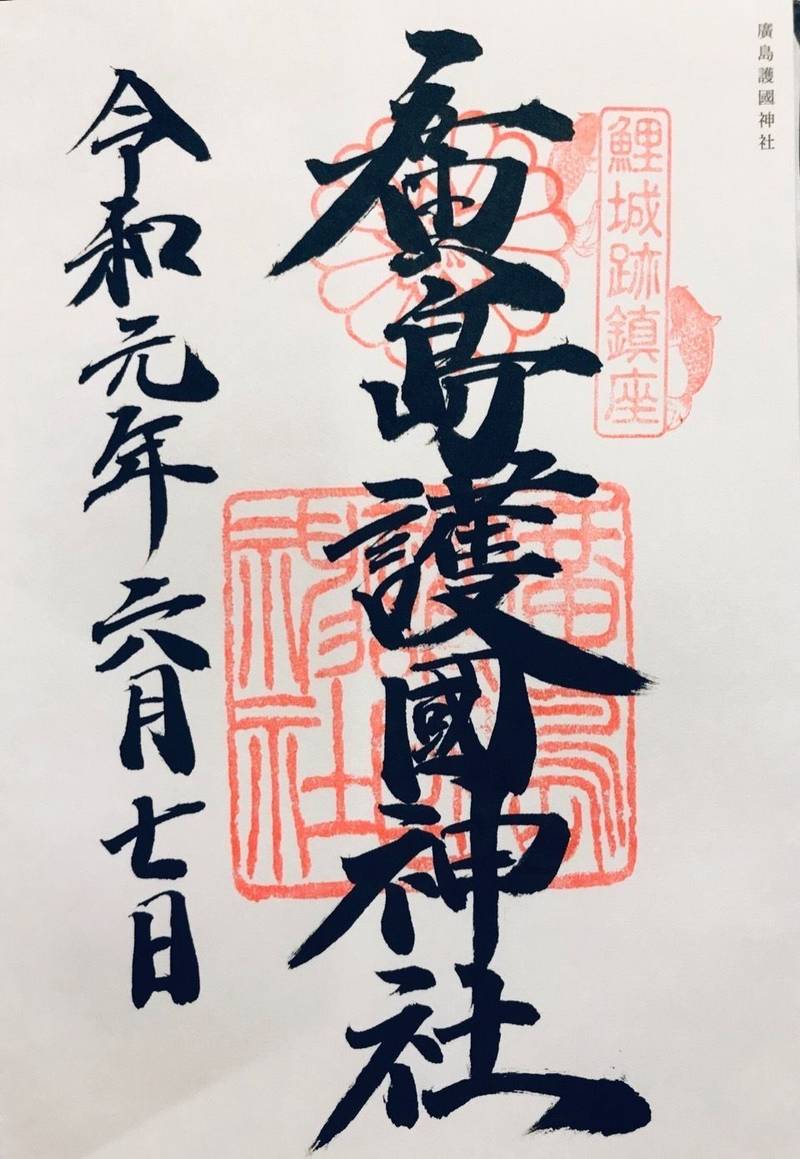 廣島護國神社
鯉城跡鎮座
廣島護國神社
令和元年六月七日